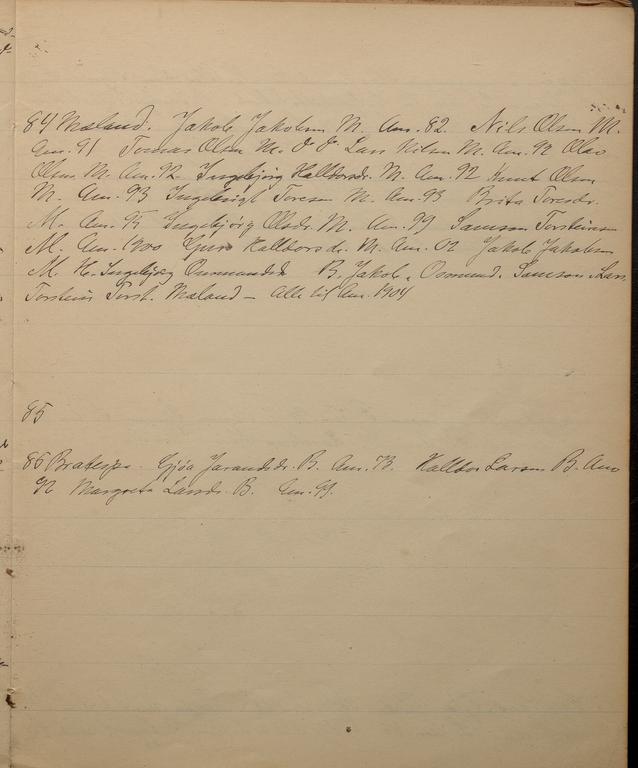 84 Mæland. Jakob Jakobsen M. Am. 82. Nils Olsen M.
Am. 91 Tomas Olsen M. Lars Nilsen M. Am. 92 Olav
Olsen M. Am. 92 Ingebjørg Halldorsdr. M. Am. 92 Knut Olsen
M. Am. 93 Ingebrigt Toresen M. Am. 93 Brita Toresdr.
M. Am. 95 Ingebjørg Olsdr. M. Am. 99 Samson Torsteinsen
M. Am. 1900 Guro Halldorsdr. M. Am. 02 Jakob Jakobsen
M. K. Ingebjørg Osmundsd B. Jakob, Osmund, Samson, Lars
Torstein Torst. Mæland – Alle til Am. 1904
85
86 Bratespe. Gjøa Jarandsdr. B. Am. 73. Halldor Larsen B. Am
92 Margreta Larsdr. B. Am. 99.